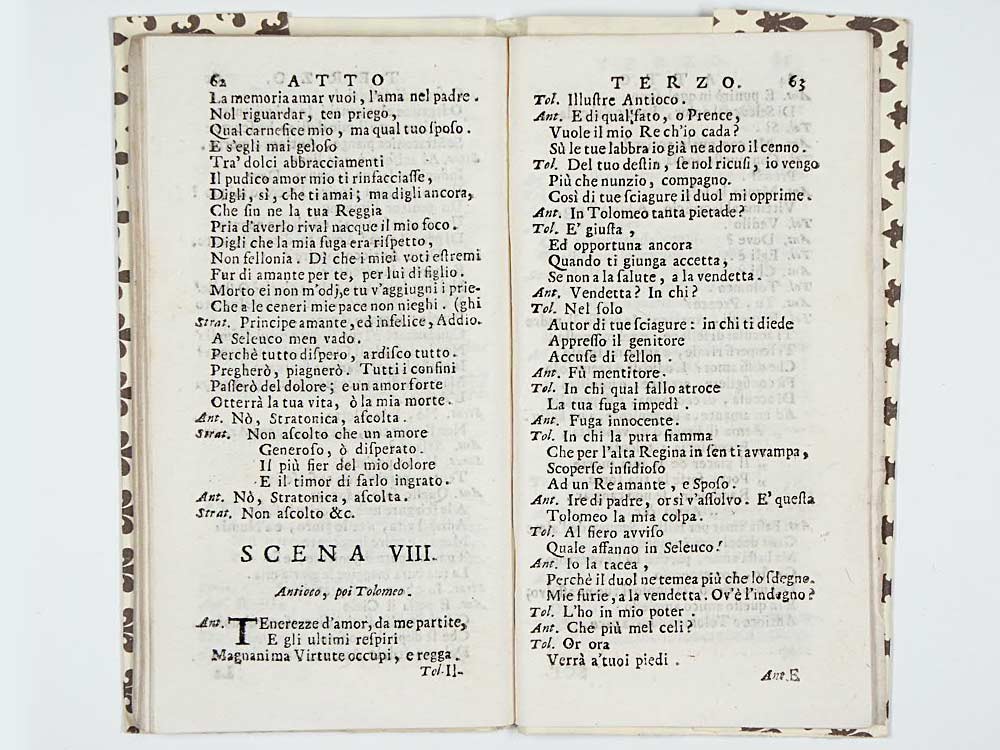 62 ATTO
La memoria amar vuoi, l'ama nel padre.
Nol riguardar, ten priego,
Qual carnefice mio, ma qual tuo sposo.
E s'egli mai geloso
Tra' dolci abbracciamenti
Il pudico amor mio ti rinfacciasse,
Digli, sì, che ti amai; ma digli ancora,
Che sin ne la tua Reggia
Pria d'averlo rival nacque il mio foco.
Digli che la mia fuga era rispetto,
Non fellonia. Dì che i miei voti estremi
Fur di amante per te, per lui di figlio.
Morto ei non m'odj, e tu v'aggiugni i prie-
Che a le ceneri mie pace non nieghi. (ghi
Strat. Principe amante, ed infelice, Addio.
A Seleuco men vado.
Perchè tutto dispero, ardisco tutto.
Pregherò, piagnerò. Tutti i confini
Passerò del dolore; e un amor forte
Otterrà la tua vita, ò la mia morte.
Ant. Nò, Stratonica, ascolta.
Strat. Non ascolto che un amore
Generoso, ò disperato.
Il più fier del mio dolore
E il timor di farlo ingrato.
Ant. Nò, Stratonica, ascolta.
Strat. Non ascolto &c.
SCENA VIII.
Antioco, poi Tolomeo.
Ant. TEnerezze d'amor, da me partite,
E gli ultimi respiri
Magnanima Virtute occupi, e regga.
Tol. Il-
TERZO. 63
Tol. Illustre Antioco.
Ant. E di qual fato, o Prence,
Vuole il mio Re ch'io cada?
Sù le tue labbra io già ne adoro il cenno.
Tol. Del tuo destin, se nol ricusi, io vengo
Più che nunzio, compagno.
Così di tue sciagure il duol mi opprime.
Ant. In Tolomeo tanta pietade?
Tol. E' giusta,
Ed opportuna ancora
Quando ti giunga accetta,
Se non a la salute, a la vendetta.
Ant. Vendetta? In chi?
Tol. Nel solo
Autor di tue sciagure: in chi ti diede
Appresso il genitore
Accuse di fellon.
Ant. Fù mentitore.
Tol. In chi qual fallo atroce
La tua fuga impedì.
Ant. Fuga innocente.
Tol. In chi la pura fiamma
Che per l'alta Regina in sen ti avvampa,
Scoperse insidioso
Ad un Re amante, e Sposo.
Ant. Ire di padre, or sì v'assolvo. E' questa
Tolomeo la mia colpa.
Tol. Al fiero avviso
Quale affanno in Seleuco!
Ant. Io la tacea,
Perchè il duol ne temea più che lo sdegno.
Mie furie, a la vendetta. Ov'è l'indegno?
Tol. L'ho in mio poter.
Ant. Che più mel celi?
Tol. Or ora
Verrà a' tuoi piedi.
Ant. E